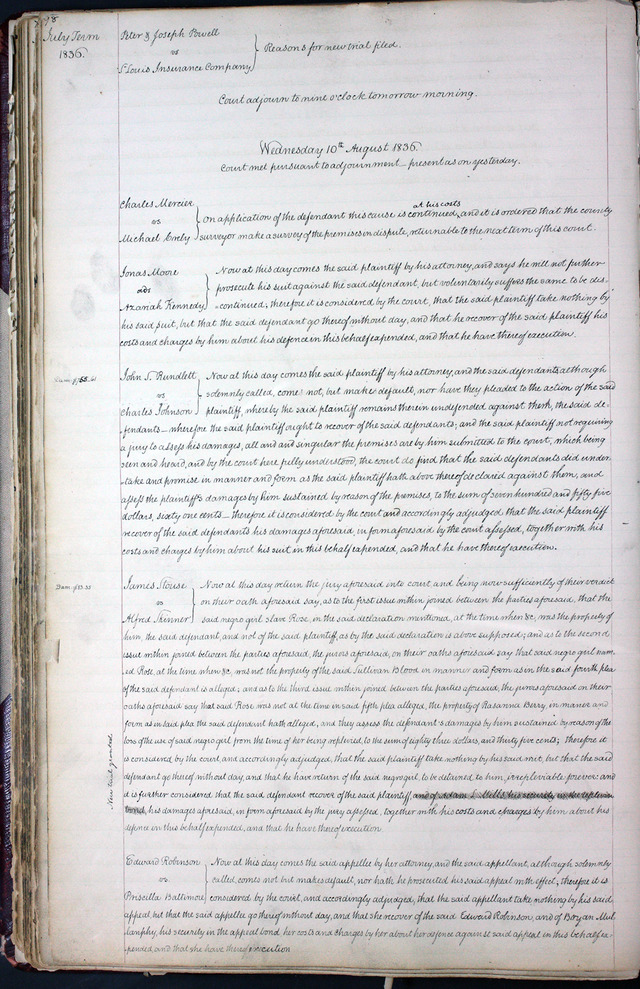 98
July Term
1836.
Peter & Joseph Powell
vs
St Louis Insurance Company
Reasons for new trial filed.
Court adjourn to nine o'clock tomorrow morning.
Wednesday 10th August 1836.
Court met pursuant to adjournment – present as on yesterday.
Charles Mercier
vs
Michael
at his costs
on application of the defendant this cause is continued, and it is ordered that the county
surveyor make a survey of the premises in dispute, returnable to the next term of this court.
Jonas Moore
ads
Azanah Kennedy
Now at this day comes the said plaintiff by his attorney, and says he will not further
prosecute his suit against the said defendant, but voluntarily suffers the same to be dis-
continued; therefore it is considered by the court, that the said plaintiff take nothing by
his said suit, but that the said defendant go thereof without day, and that he recover of the said plaintiff his
costs and charges by him about his defence in this behalf expended, and that he have thereof execution.
John S. Rundlett
vs
Charles Johnson
Now at this day comes the said plaintiff by his attorney, and the said defendants although
solemnly called, come not, but make default, nor have they pleaded to the action of the said
plaintiff, whereby the said plaintiff remains therein undefended against them, the said de-
fendants – wherefore the said plaintiff ought to recover of the said defendants; and the said plaintiff not requiring
a jury to assess his damages, all and and singular the premises are by him submitted to the court, which being
seen and heard, and by the court here fully understood, the court do find that the said defendants did under
take and promise in manner and form as the said plaintiff hath above thereof declared against them, and
assess the plaintiff's damages by him sustained by reason of the premises, to the sum of seven hundred and fifty five
dollars, sixty one cents – therefore it is considered by the court and accordingly adjudged, that the said plaintiff
recover of the said defendants his damages aforesaid, in form aforesaid by the court assessed, together with his
costs and charges by him about his suit in this behalf expended, and that he have thereof execution.
James Stouse
vs
Alfred Skinner
Now at this day return the jury aforesaid into court and being now sufficiently of their verdict
on their oath aforesaid say, as to the first issue within joined between the parties aforesaid, that the
said negro girl slave Rose, in the said declaration mentioned, at the time when &c, was the property of
him, the said defendant, and not of the said plaintiff, as by the said declaration is above supposed; and as to the second
issue within joined between the parties aforesaid, the jurors aforesaid, on their oaths aforesaid say that said negro girl nam-
ed Rose, at the time when &c, was not the property of the said Sullivan Blood in manner and form as in the said fourth plea
of the said defendant is alleged; and as to the third issue within joined between the parties aforesaid, the jurors aforesaid on their
oaths aforesaid say that said Rose was not at the time in said fifth plea alleged, the property of Rosanna Berry, in manner and
form as in said plea the said defendant hath alleged, and they assess the defendant's damages by him sustained by reason of the
loss of the use of said negro girl from the time of her being replevied, to the sum of eighty three dollars, and thirty five cents; therefore it
is considered by the court, and accordingly adjudged, that the said plaintiff take nothing by his said writ, but that the said
defendant go thereof without day, and that he have return of the said negro girl, to be delivered to him, irrepleviable forever: and
it is further considered that the said defendant recover of the said plaintiff and of Adam L. Mills his security in the replevin
bond, his damages aforesaid, in form aforesaid by the jury assessed, together with his costs and charges by him about his
defence in this behalf expended, and that he have thereof execution
New trial granted
Edward Robinson
vs
Priscilla Baltimore
Now at this day comes the said appellee by her attorney, and the said appellant, although solemnly
called, comes not but makes default, nor hath he prosecuted his said appeal with effect; therefore it is
considered by the court, and accordingly adjudged, that the said appellant take nothing by his said
appeal, but that the said appellee go thereof without day, and that she recover of the said Edward Robinson, and of Bryan Mul
lanphy, his security in the appeal bond, her costs and charges by her about her defence against said appeal in this behalf ex-
pended, and that she have thereof execution